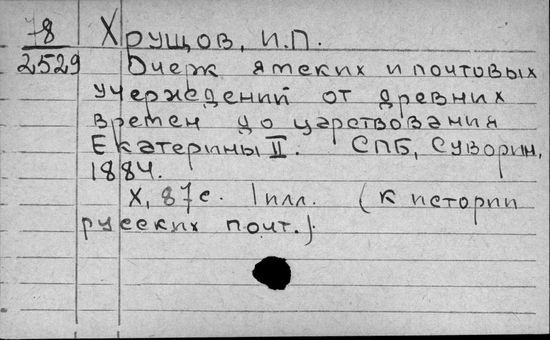 78
2529
Хрущов, И.П.
Очерк ямских и почтовых
учереждений от древних
времен до царствования
Екатерины II. СПБ, Суворин,
1884.
X, 87с. 1 илл. (к истории
русских почт.)